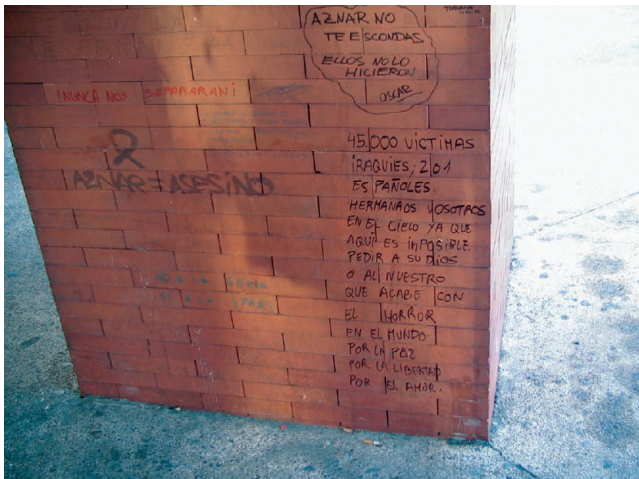 AZNAR NO
TE ESCONDAS
ELLOS NO LO
HICIERON
OSCAR
¡NUNCA NOS SEPARARAN!
AZNAR = ASESINO
45.000 VÍCTIMAS
IRAQUIES; 201
ESPAÑOLES.
HERMANAOS VOSOTROS
EN EL CIELO YA QUE
AQUÍ ES IMPOSIBLE.
PEDIR A SU DIOS
O AL NUESTRO
QUE ACABE CON
EL HORROR
EN EL MUNDO.
POR LA PAZ
POR LA LIBERTAD
POR EL AMOR.